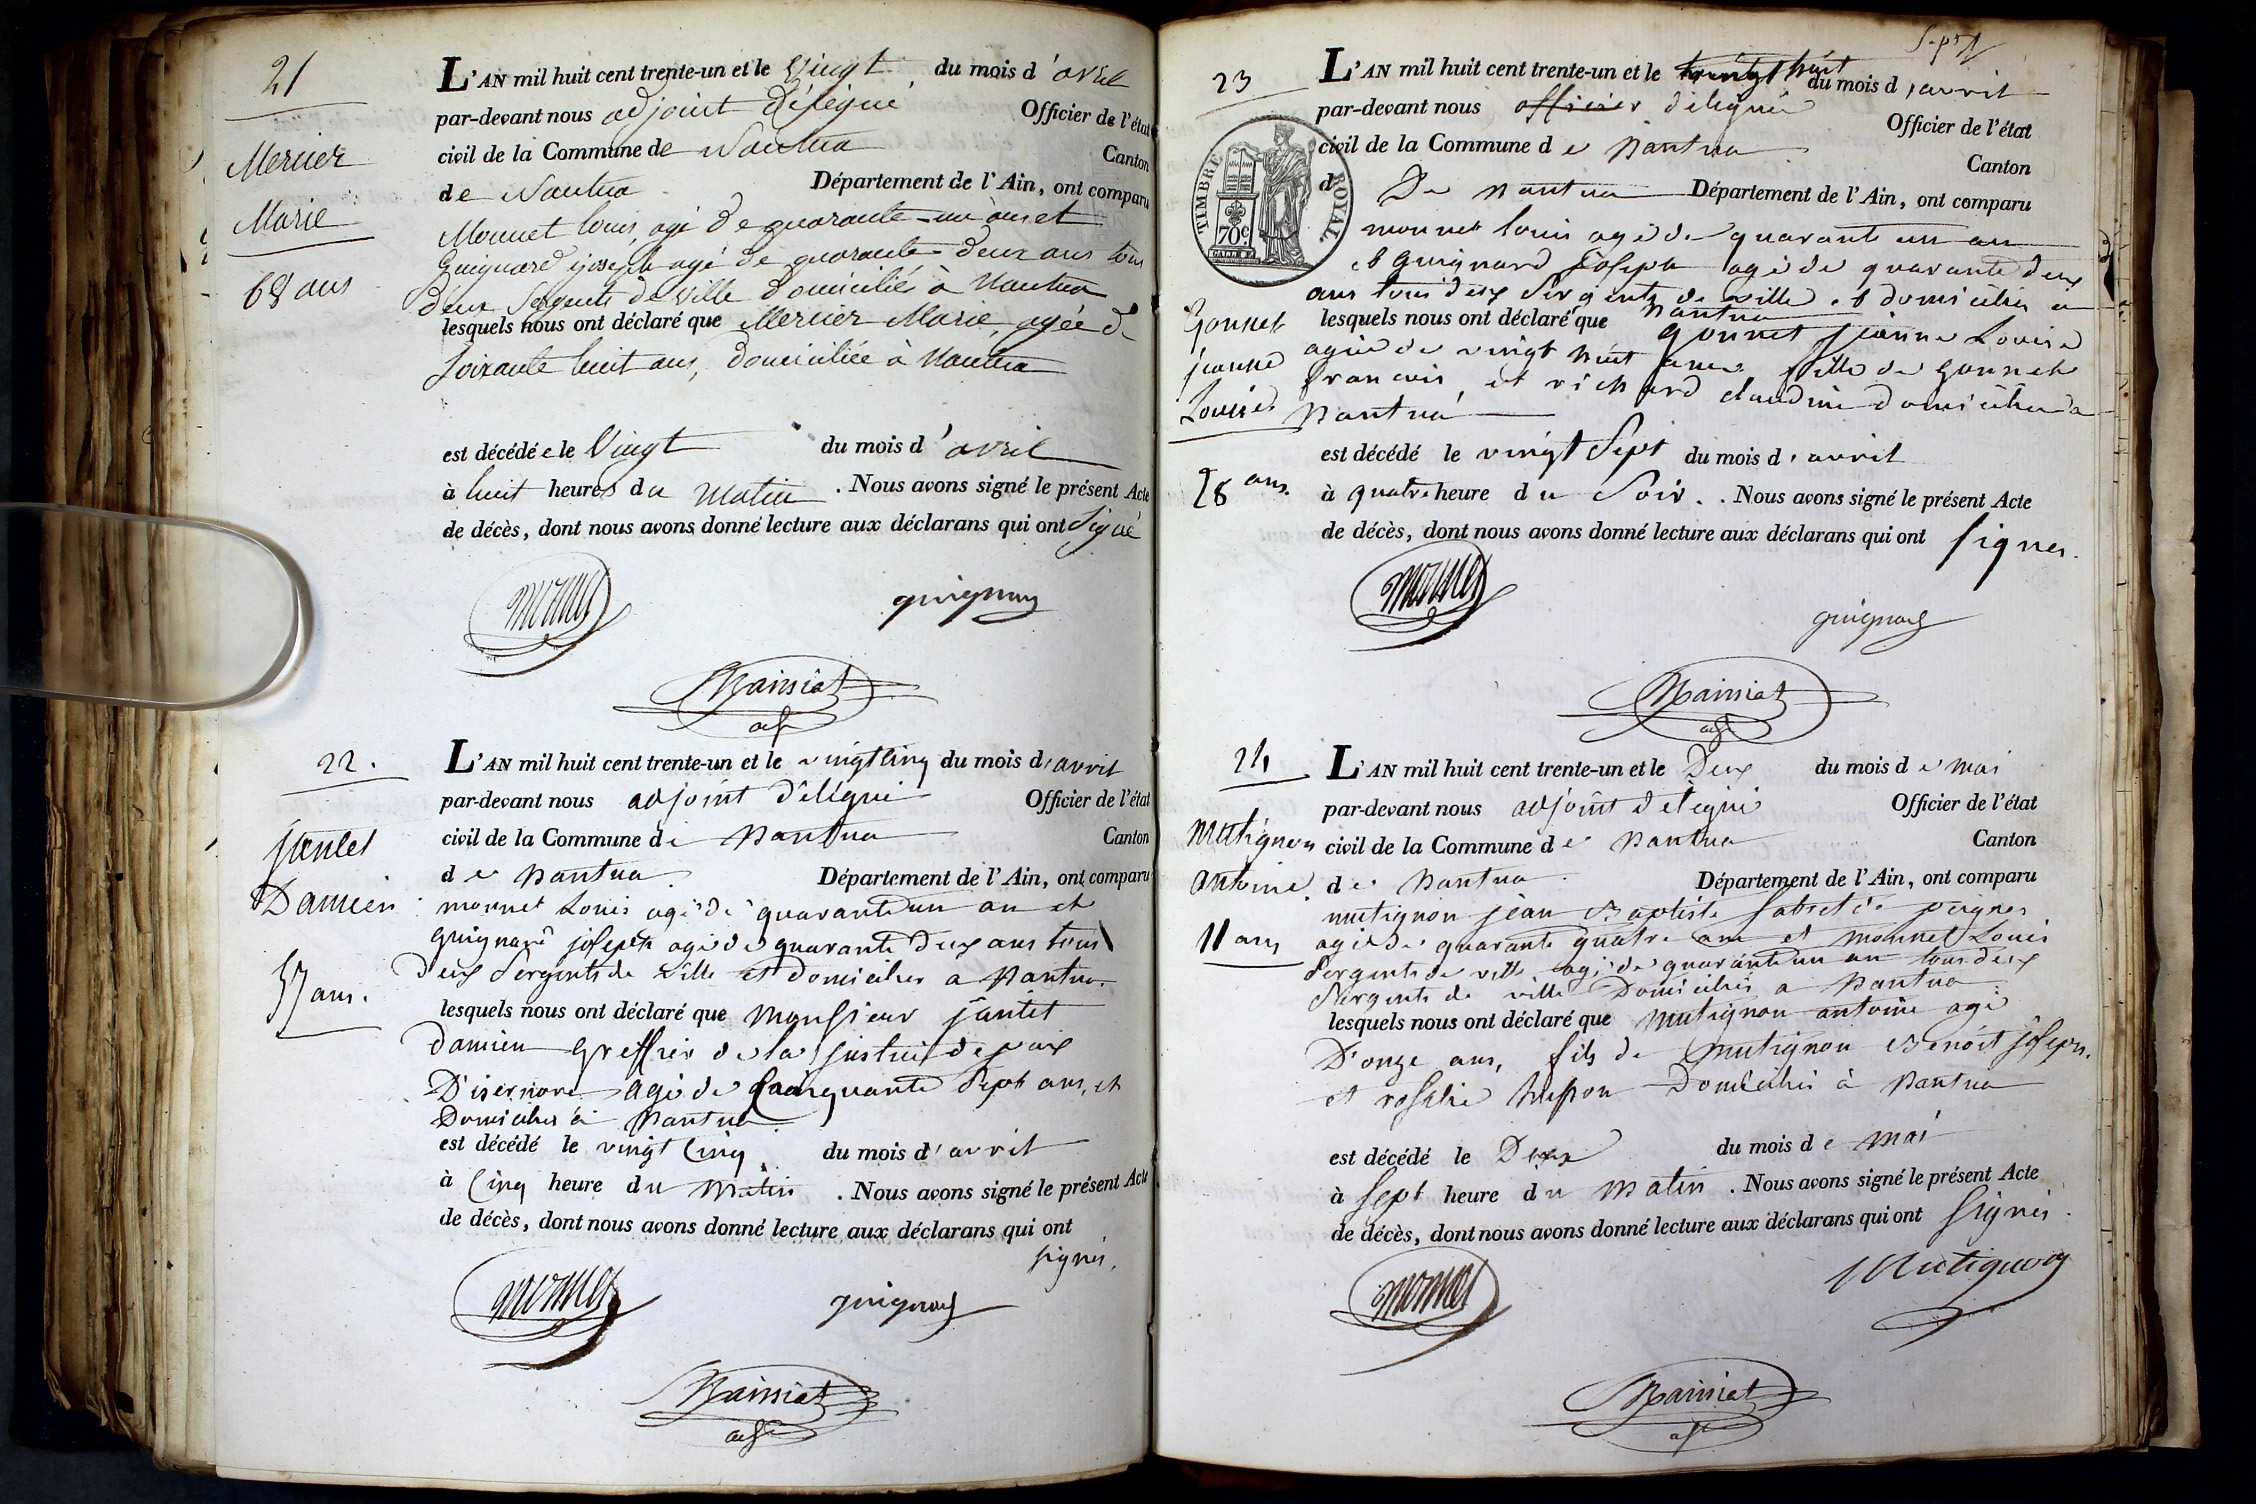 21
Mercier
Marie
68 ans
L'AN mil huit cent trente-un et le Vingt du mois d'avril
par-devant nous adjoint délégué Officier de l'état
civil de la Commune de Nantua Canton
de Nantua Département de l'Ain, ont comparu
Monnet louis, agé de quarante-un ans et
Guignard joseph agé de quarante-deux ans tous
deux Sergents de Ville domiciliés à Nantua
lesquels nous ont déclaré que Mercier Marie, agée de
Soixante huit ans, domiciliée à Nantua
est décédée le Vingt du mois d'avril
à huit heures du Matin . Nous avons signé le présent Acte
de décès, dont nous avons donné lecture aux déclarans qui ont Signé
monnet
guignard
Mainiat
adj
22.
jantet
Damien
57 ans.
L'AN mil huit cent trente-un et le vingt Cinq du mois d'avril
par-devant nous adjoint délégué Officier de l'état
civil de la Commune de Nantua Canton
de Nantua Département de l'Ain, ont comparu
monnet Louis agé de quarante un an et
guignard joseph agé de quarante deux ans tous
deux Sergents de ville et domiciliés a Nantua
lesquels nous ont déclaré que Monsieur jantet
damien greffier de la justice de paix
D'isernore agé de Cinquante Sept ans, et
Domicilié à Nantua
est décédé le vingt Cinq du mois d'avril
à Cinq heure du Matin . Nous avons signé le présent Acte
de décès, dont nous avons donné lecture aux déclarans qui ont
signés.
monnet
guignard
Mainiat
adj
23
Gonnet
jeanne
Louise
28 ans.
Sept
L'AN mil huit cent trente-un et le vingt huit du mois d'avril
par-devant nous officier délégué Officier de l'état
civil de la Commune de Nantua Canton
d De Nantua Département de l'Ain, ont comparu
monnet louis agé de quarante un an
et guignard Joseph agé de quarante deux
ans tous deux Sergents de ville et domiciliés a
Nantua
lesquels nous ont déclaré que gonnet jeanne Louise
agée de vingt huit ans fille de gonnet
francois et richard claudine domiciliée a
Nantua
est décédé le vingt Sept du mois d'avril
à quatre heure du Soir. . Nous avons signé le présent Acte
de décès, dont nous avons donné lecture aux déclarans qui ont signés.
TIMBRE ROYAL.
70c.
monnet
guignard
Mainiat
adj
24
mutignon
antoine
11 ans
L'AN mil huit cent trente-un et le Deux du mois de mai
par-devant nous adjoint délégué Officier de l'état
civil de la Commune de Nantua Canton
de Nantua Département de l'Ain, ont comparu
mutignon jean Baptiste fabt de peignes
agé de quarante quatre ans et monnet Louis
Sergents de ville agé de quarante un an tous deux
Sergents de ville Domiciliés a Nantua
lesquels nous ont déclaré que mutignon antoine agé
D'onze ans, fils de mutignon Benoit joseph.
et rosalie Domiciliés à Nantua
est décédé le Deux du mois de mai
à Sept heure du Matin . Nous avons signé le présent Acte
de décès, dont nous avons donné lecture aux déclarans qui ont Signés.
monnet
Mutignon
Mainiat
adj